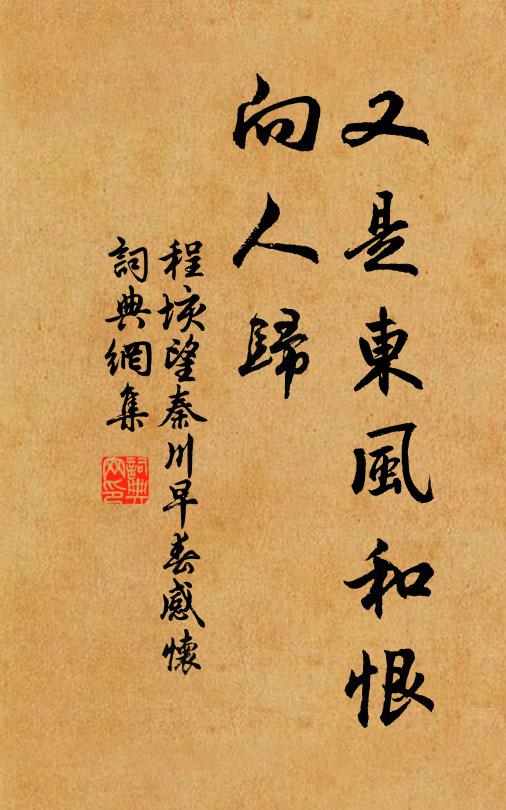 又是東風和恨
向人歸
程垓望秦川早春感懷
詞典網集
詞典網印